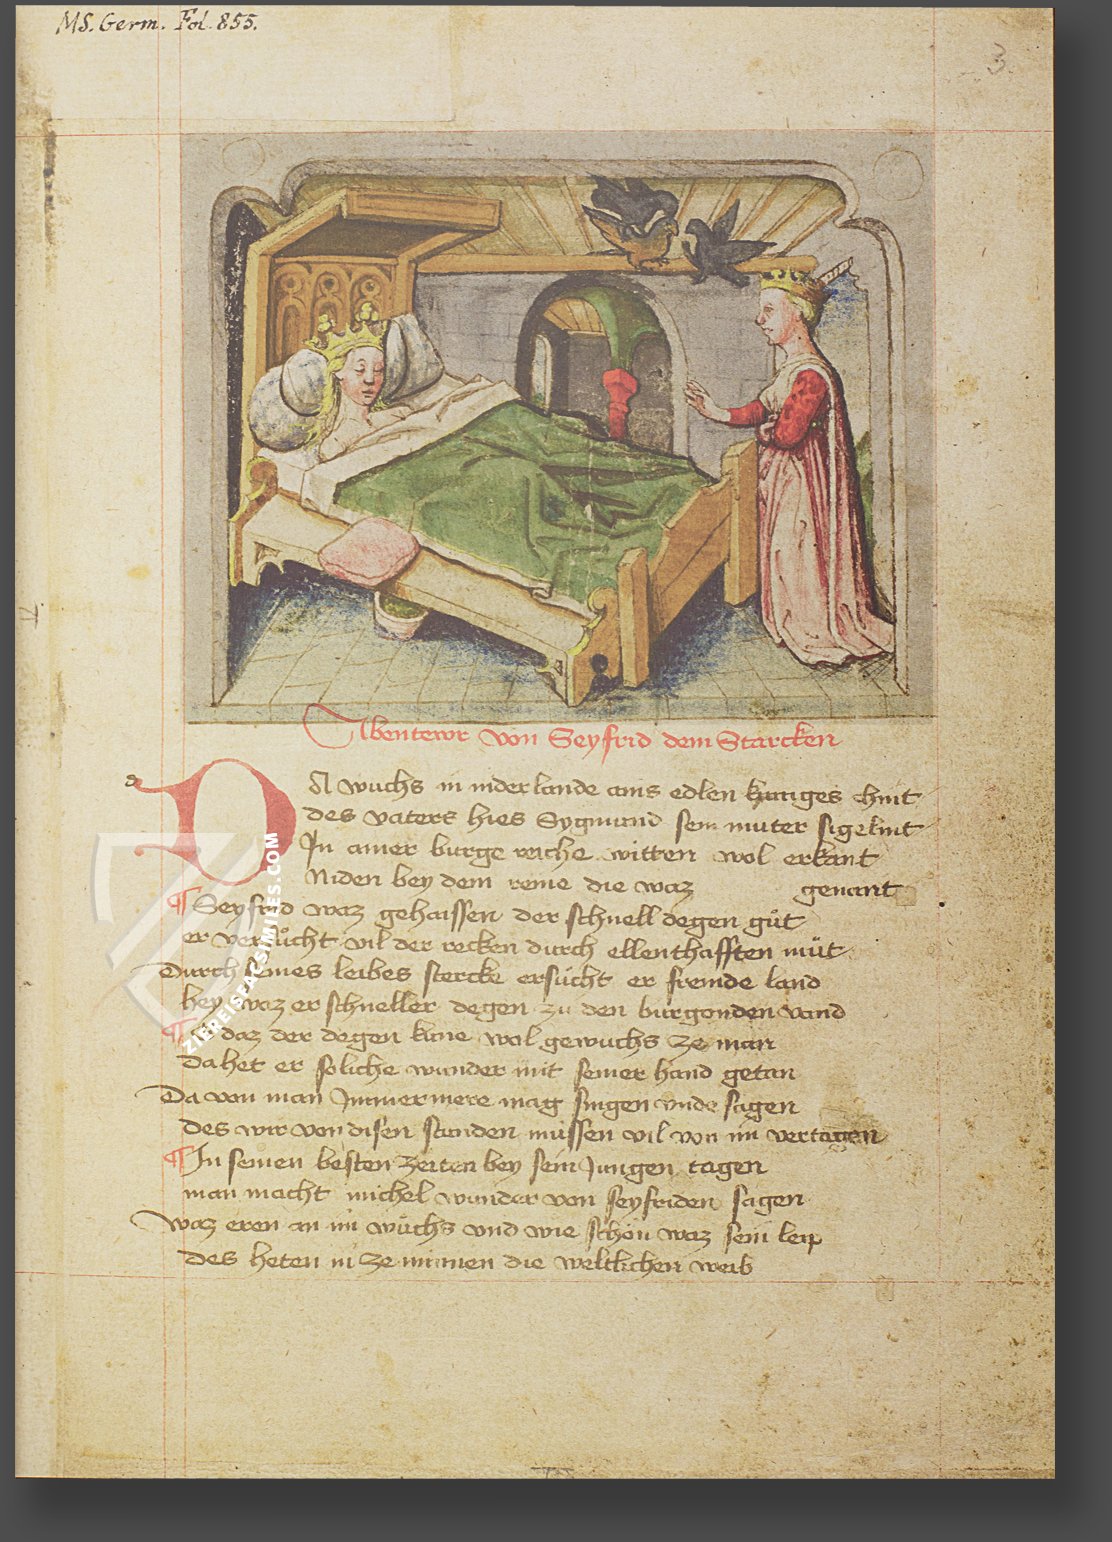 MS. Germ. Fol. 855.
3
Abentewr von Seyfrid dem Starcken
d
DA wuchs in niderlande ains edlen kuniges chint
des vaters hies Sygmund sein muter sigelint
In ainer burge reiche witten wol erkant
Niden bey dem reine die waz genant
¶ Seyfrid waz gehaissen der schnell degen gůt
er versůcht vil der recken durch ellenthafften můt
Durch seines leibes stercke ersůcht er fremde land
hey waz er schneller degen zu den burgonden vand
¶ E daz der degen kune wol gewuchs ze man
Da het er soliche wunder mit seiner hand getan
Da von man Immermere mag singen vnde sagen
des wir von disen stunden müssen vil von im vertagen
¶ In seinen besten zeiten bey sein Jungen tagen
man macht michel wunder von seyfriden sagen
Waz eren an im wůchs vnd wie schön waz sein leip
des heten in ze minnen die weltlichen weib
ZIEREISFACSIMILES.COM